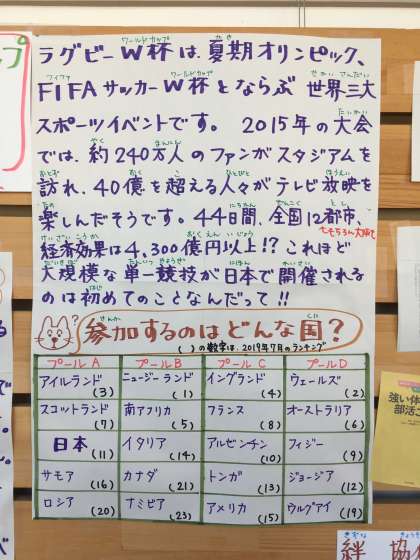 ワールドカップ
ラグビーW杯は、夏期オリンピック、
フィファ ワールドカップ せかいさんだい
FIFAサッカーW杯とならぶ 世界三大
スポーツイベントです。2015年の大会
では、約240万人のファンがスタジアムを
訪れ、40億を超える人々がテレビ放映を
楽しんだそうです。44日間、全国12都市、
経済効果は4,300億円以上!? これほど
大規模な単一競技が日本で開催される
のは初めてのことなんだって!!
参加するのはどんな国?
( )の数字は、2019年7月のランキング
プールA プールB プールC プールD
アイルランド (3) ニュージーランド (1) イングランド (4) ウェールズ (2)
スコットランド (7) 南アフリカ (5) フランス (8) オーストラリア (6)
日本 (11) イタリア (14) アルゼンチン (10) フィジー (9)
サモア (16) カナダ (21) トンガ (13) ジョージア (12)
ロシア (20) ナミビア (23) アメリカ (15) ウルグアイ (19)
強い体
部活ご
きずな
絆 協